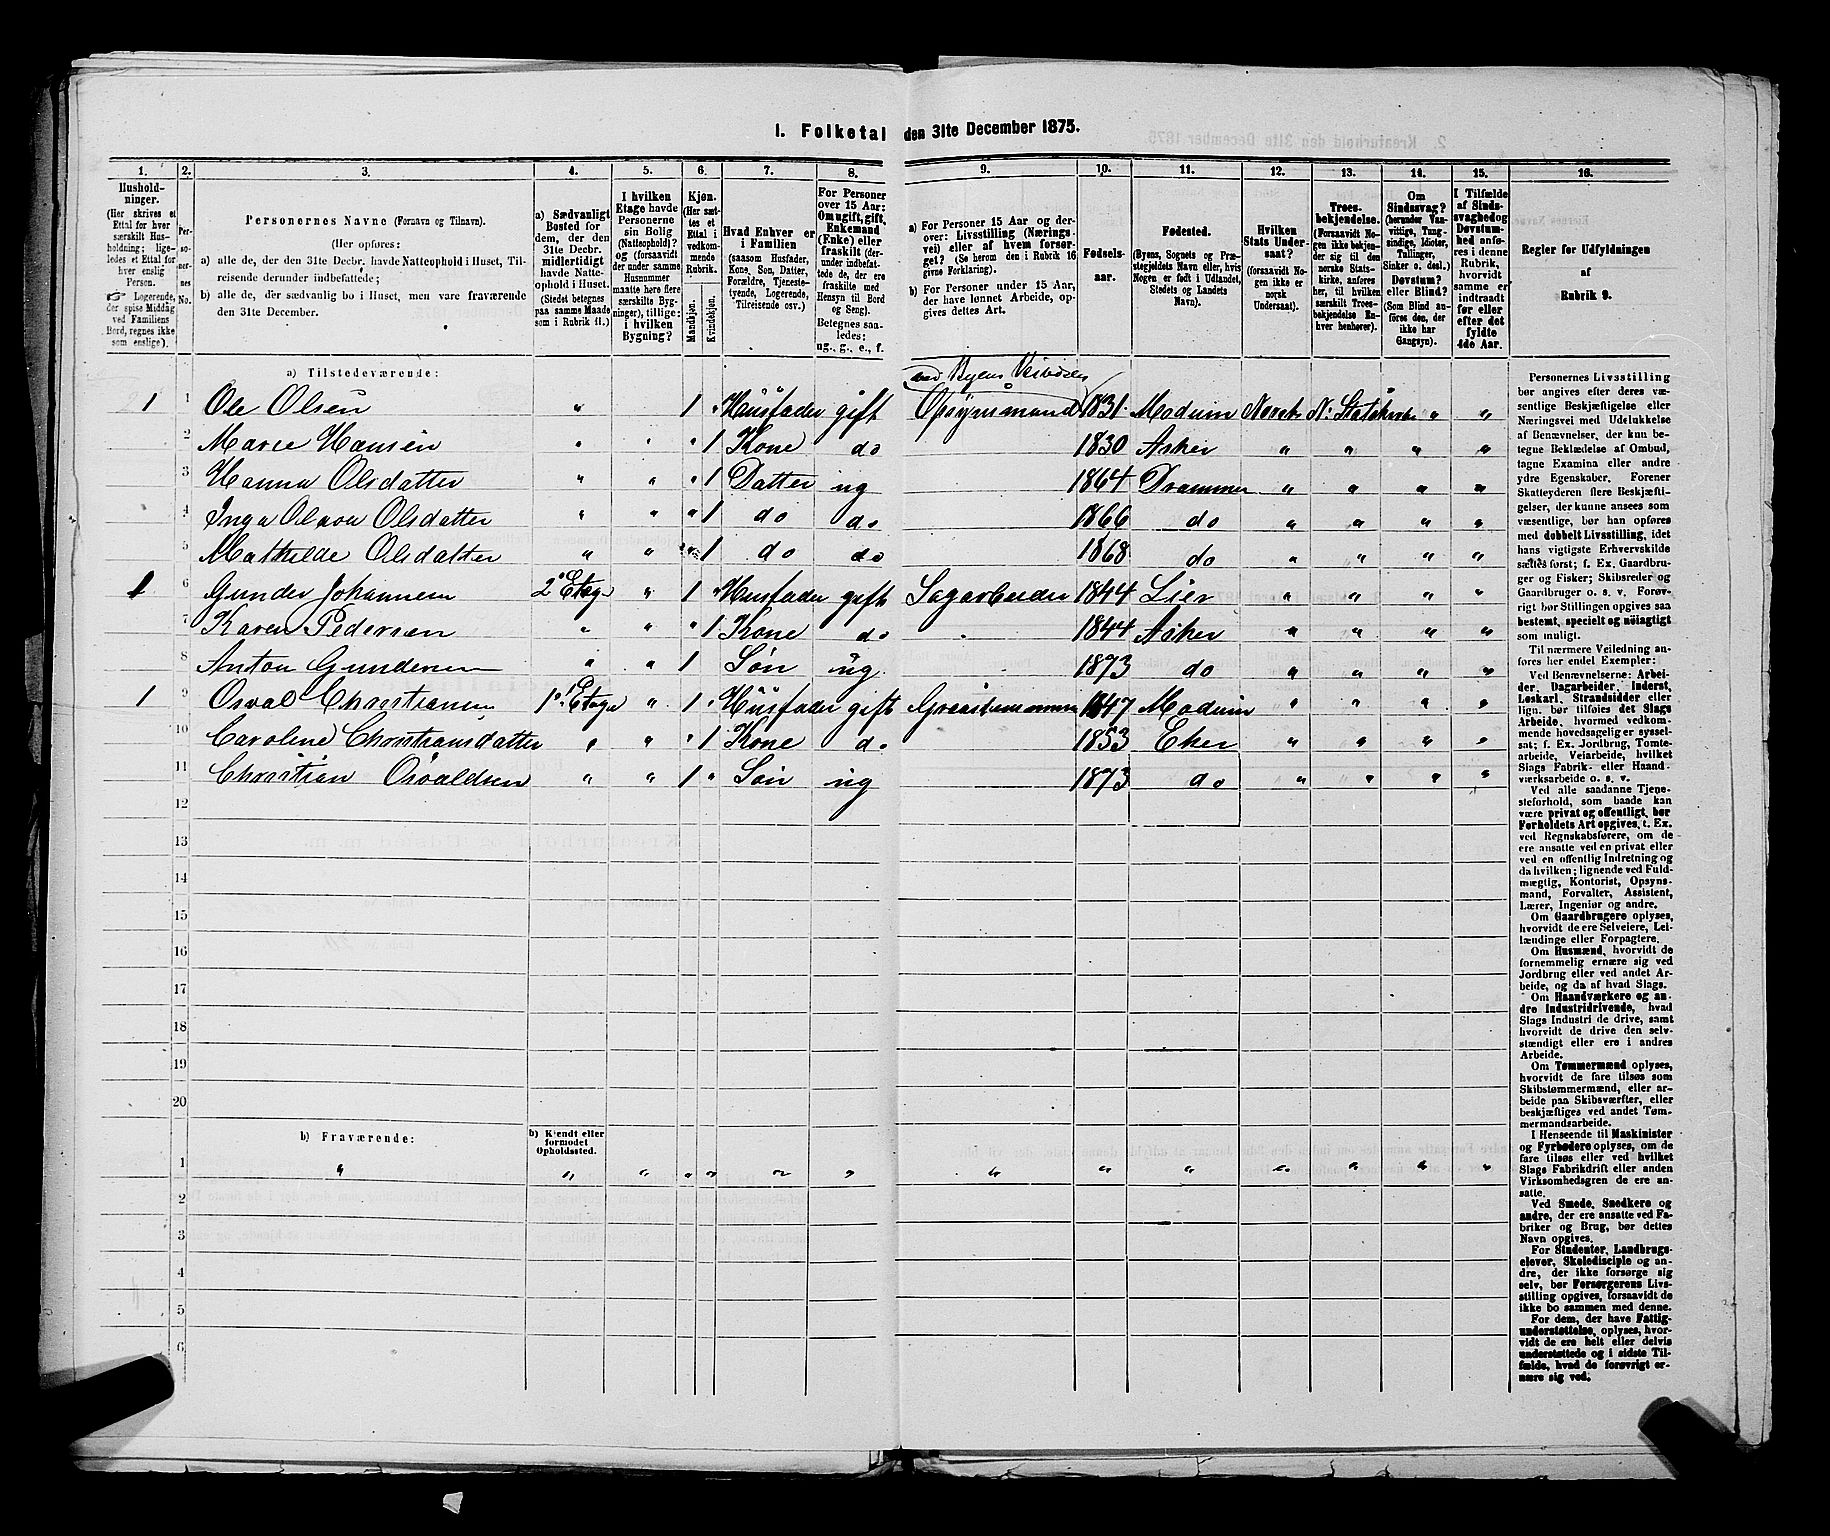 I. Folketal den 31te December 1875.
1. 2. 3. 4. 5. 6. 7. 8. 9. 10. 11. 12. 13. 14. 15. 16.
Husholdninger.
(Her skrives et
Ettal for hver
særskilt Husholdning;
ligeledes et Ettal for
hver enslig
Person.
Logerende,
der spise Middag
ved Familiens
Bord, regnes ikke
som enslige).
Personernes No.
Personernes Navne (Fornavn og Tilnavn).
(Her opføres:
a) alle de, der den 31te Decbr. havde Natteophold i Huset, Tilreisende derunder indbefattede;
b) alle de, der sædvanlig bo i Huset, men vare fraværende
den 31te December.
a) Sædvanligt
Bosted for
dem, der den
31te Decbr.
midlertidigt
havde Natteophold i Huset.
(Stedet betegnes
paa samme Maade
som i Rubrik 11.)
I hvilken
Etage havde
Personerne
sin Bolig
(Natteophold)?
og (forsaavidt
der under samme
Husnummer
maatte høre flere
særskilte Bygninger), tillige:
i hvilken
Bygning?
Kjøn.
(Her sættes et
Ettal i
vedkommende
Rubrik.
Mandkjøn.
Kvindekjøn.
Hvad Enhver er
i Familien
(saasom Husfader,
Kone, Søn, Datter,
Forældre, Tjenestetyende, Logerende,
Tilreisende osv.)
For Personer
over 15 Aar:
Om ugift, gift,
Enkemand
(Enke) eller
fraskilt (derunder indbefattede de, der ere
fraskilte med
Hensyn til Bord
og Seng).
Betegnes saaledes:
ug., g., e., f.
a) For Personer 15 Aar og derover: Livsstilling (Næringsvei) eller af hvem forsørget? (Se herom den i Rubrik 16
givne Forklaring).
b) For Personer under 15 Aar,
der have lønnet Arbeide, opgives dettes Art.
Fødselsaar.
Fødested.
(Byens, Sognets og Præstegjeldets Navn eller, hvis
Nogen er født i Udlandet,
Stedets og Landets
Navn).
Hvilken
Stats Undersaat?
(forsaavidt Nogen ikke er
norsk
Undersaat).
Troesbekjendelse.
(Forsaavidt Nogen ikke bekjender sig til den
norske Statskirke, anføres
her, til hvilken
særskilt Troesbekjendelse Enhver henhører).
Om
Sindssvag?
(herunder Vanvittige, Tungsindige, Idioter,
Tullinger,
Sinker o. desl.)
Døvstum?
eller Blind?
(Som Blind anføres den, der
ikke har
Gangsyn).
I Tilfælde
af Sindssvaghed og
Døvstumhed anføres i denne
Rubrik,
hvorvidt
samme er
indtraadt
før eller
efter det
fyldte
4de Aar.
Regler for Udfyldningen
af
Rubrik 9.
a) Tilstedeværende:
ved Byens
1 1 Ole Olsen " 1 " Husfader gift Opsynsmand 1831 Modum Norsk N. Statskirke " "
2 Maree Hansen " " " 1 Kone do 1830 Asker " " " "
3 Hanna Olsdatter " " " 1 Datter ug 1864 Drammen " " " "
4 Inga Olava Olsdatter " " " 1 do do 1866 do " " " "
5 Mathilde Olsdatter " " " 1 do do 1868 do " " " "
1 6 Gunder Johannesen 2 Etage " 1 " Husfader gift Sagarbeider 1844 Lier " " " "
7 Karen Pedersen " " " 1 Kone do 1844 Asker " " " "
8 Anton Gundersen " " 1 Søn ug 1873 do " " " "
1 9 Osval Christiansen 1 Etage " 1 " Husfader gift 1847 Modum " " " "
10 Caroline Christiansdatter " " " 1 Kone do 1853 Eker " " " "
11 Christian Osvaldsen " " 1 " Søn ug 1873 do " " " "
12
13
14
15
16
17
18
19
20
b) Fraværende:
b) Kjendt eller
formodet
Opholdssted.
1 " " " " " " " " " " " " " "
2
3
4
5
6
Personernes Livsstilling
bør angives efter deres væsentlige Beskjæftigelse eller
Næringsvei med Udelukkelse
af Benævnelser, der kun betegne Beklædelse af Ombud,
tagne Examina eller andre
ydre Egenskaber. Forener
Skatteyderen flere Beskjæftigelser, der kunne ansees som
væsentlige, bør han opføres
med dobbelt Livsstilling, idet
hans vigtigste Erhvervskilde
sættes først; f. Ex. Gaardbruger og Fisker; Skibsreder og
Gaardbruger o. s. v. Forøvrigt bør Stillingen opgives saa
bestemt, specielt og nøiagtigt
som muligt.
Til nærmere Veiledning anføres her endel Exempler:
Ved Benævnelserne: Arbeider, Dagarbeider, Inderst,
Løskarl, Strandsidder eller
lign. bør tilføies det Slags
Arbeide, hvormed vedkommende hovedsagelig er sysselsat; f. Ex. Jordbrug, Tomtearbeide, Veiarbeide, hvilket
Slags Fabrik- eller Haandværksarbeide o. s. v.
Ved alle saadanne Tjenesteforhold, som baade kan
være privat og offentligt, bør
Forholdets Art opgives, t. Ex.
ved Regnskabsførere, om de
ere ansatte ved en privat eller
ved en offentlig Indretning og
da hvilken; lignende ved Fuldmægtig, Kontorist, Opsynsmand, Forvalter, Assistent,
Lærer, Ingeniør og andre.
Om Gaardbrugere oplyses,
hvorvidt de ere Selveiere, Leilændinge eller Forpagtere.
Om Husmænd, hvorvidt de
fornemmelig ernære sig ved
Jordbrug eller ved andet Arbeide, og da af hvad Slags.
Om Haandværkere og andre Industridrivende, hvad
Slags Industri de drive, samt
hvorvidt de drive den selvstændigt eller ere i andres
Arbeide.
Om Tømmermænd oplyses,
hvorvidt de fare tilsøs som
Skibstømmermænd, eller arbeide paa Skibsværfter, eller
beskjæftiges ved andet Tømmermandsarbeide.
I Henseende til Maskinister
og Fyrbødere oplyses, om de
fare tilsøs eller ved hvilket
Slags Fabrikdrift eller anden
Virksomhedsgren de ere ansatte.
Ved Smede, Snedkere og
andre, der ere ansatte ved Fabriker og Brug, bør dettes
Navn opgives.
For Studenter, Landbrugselever, Skoledisciple og andre, der ikke forsørge sig
selv, bør Forsørgerens Livsstilling opgives, forsaavidt de
ikke bo sammen med denne.
For dem, der have Fattigunderstøttelse, oplyses, hvorvidt de ere helt eller delvis
understøttede og i sidste Tilfælde, hvad de forøvrigt ernære sig ved.